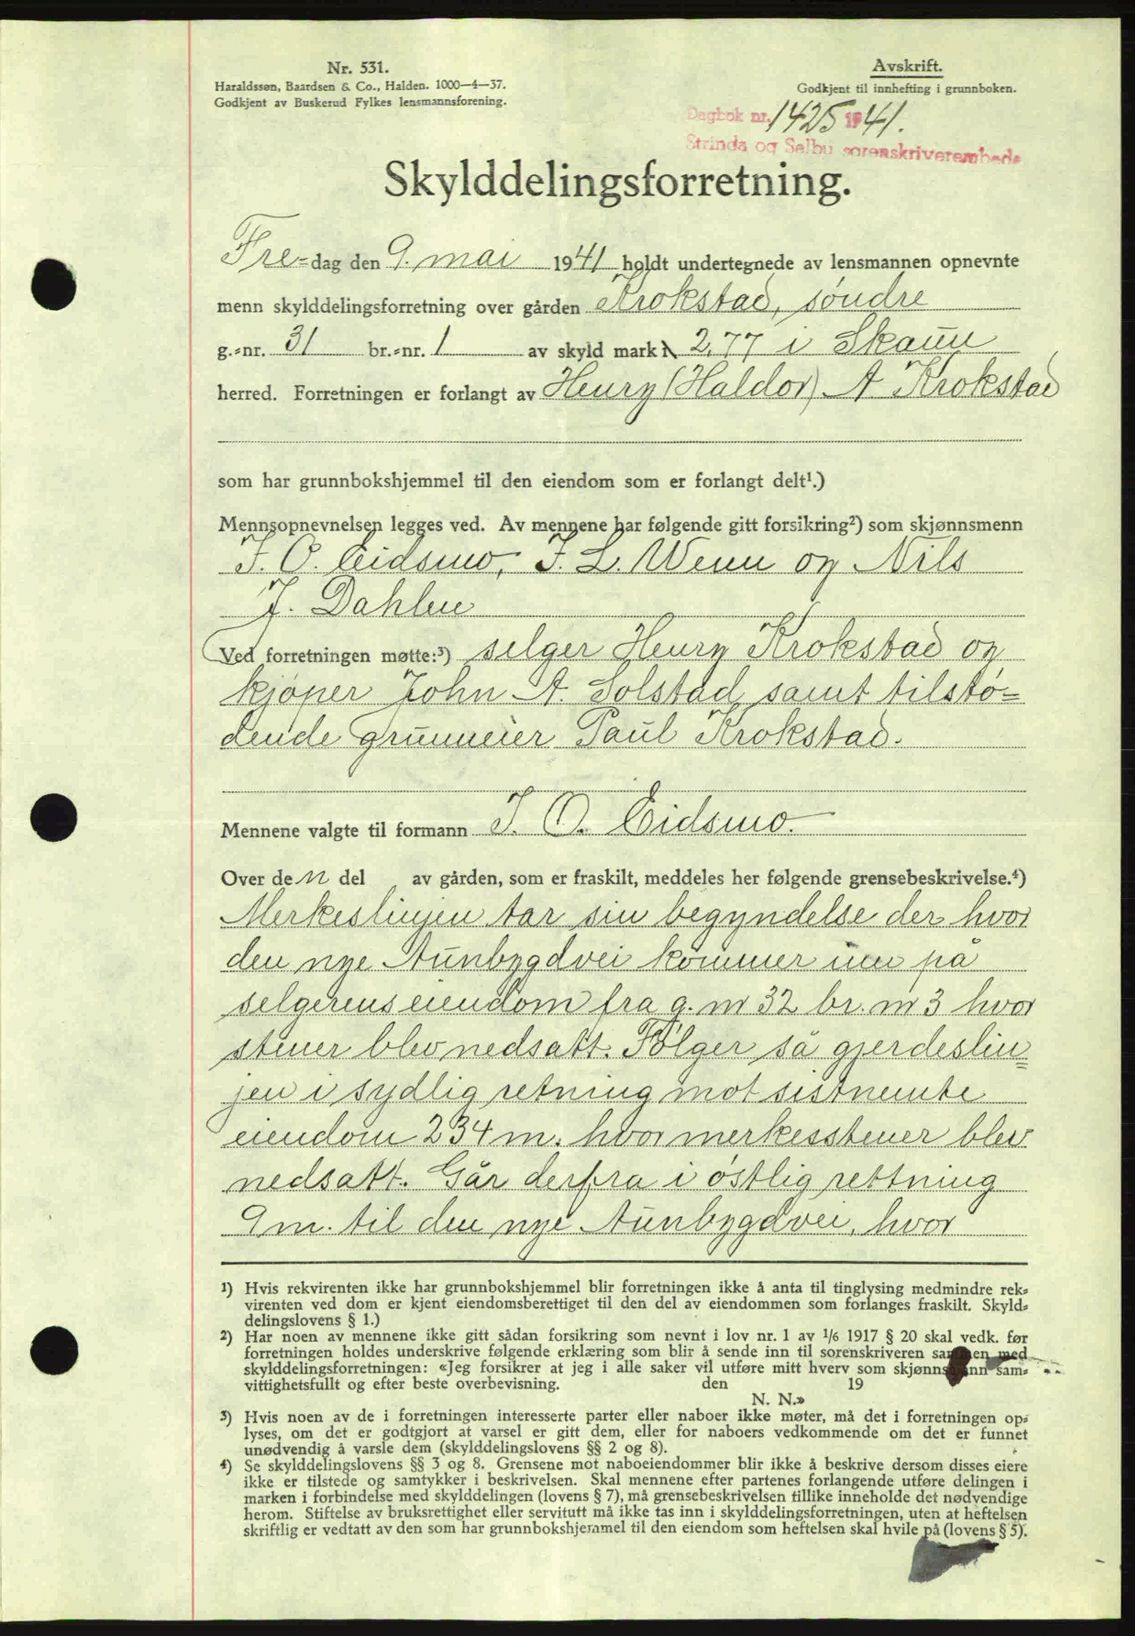 Nr. 531.
Haraldssøn, Baardsen & Co., Halden. 1000—4—37.
Godkjent av Buskerud Fylkes lensmannsforening.
Avskrift.
Godkjent til innhefting i grunnboken.
Dagbok nr. 1425 1941.
Strinda og Selbu sorenskriverembede
Skylddelingsforretning.
Fre-dag den 9. mai 1941 holdt undertegnede av lensmannen opnevnte
menn skylddelingsforretning over gården Krokstad, søndre
g.-nr. 31 br.-nr. 1 av skyld mark 2,77 i Skaun
herred. Forretningen er forlangt av Henry (Haldor) A Krokstad
som har grunnbokshjemmel til den eiendom som er forlangt delt¹.)
Mennsopnevnelsen legges ved. Av mennene har følgende gitt forsikring²) som skjønnsmenn
J. O. Eidsmo, J. L. Wenn og Nils
J. Dahlen
Ved forretningen møtte:³) selger Henry Krokstad og
kjøper John A. Solstad, samt tilstø-
dende grunneier Paul Krokstad.
Mennene valgte til formann J. O. Eidsmo.
Over den del av gården, som er fraskilt, meddeles her følgende grensebeskrivelse.⁴)
Merkeslinjen tar sin begyndelse der hvor
den nye Aunbygdvei kommer inn på
selgerens eiendom fra g. nr 32 br. nr 3 hvor
stener blev nedsatt. Følger så gjerdeslin=
jen i sydlig retning mot sistnemte
eiendom 234 m. hvor merkesstener blev
nedsatt. Går derfra i østlig rettning
9 m. til den nye Aunbygdvei, hvor
¹) Hvis rekvirenten ikke har grunnbokshjemmel blir forretningen ikke å anta til tinglysing medmindre rek-
virenten ved dom er kjent eiendomsberettiget til den del av eiendommen som forlanges fraskilt. Skyld-
delingslovens § 1.)
²) Har noen av mennene ikke gitt sådan forsikring som nevnt i lov nr. 1 av 1/6 1917 § 20 skal vedk. før
forretningen holdes underskrive følgende erklæring som blir å sende inn til sorenskriveren sammen med
skylddelingsforretningen: «Jeg forsikrer at jeg i alle saker vil utføre mitt hverv som skjønnsmann sam-
vittighetsfullt og efter beste overbevisning. den 19
N. N.»
³) Hvis noen av de i forretningen interesserte parter eller naboer ikke møter, må det i forretningen op-
lyses, om det er godtgjort at varsel er gitt dem, eller for naboers vedkommende om det er funnet
unødvendig å varsle dem (skylddelingslovens §§ 2 og 8).
⁴) Se skylddelingslovens §§ 3 og 8. Grensene mot naboeiendommer blir ikke å beskrive dersom disses eiere
ikke er tilstede og samtykker i beskrivelsen. Skal mennene efter partenes forlangende utføre delingen i
marken i forbindelse med skylddelingen (lovens § 7), må grensebeskrivelsen tillike inneholde det nødvendige
herom. Stiftelse av bruksrettighet eller servitutt må ikke tas inn i skylddelingsforretningen, uten at heftelsen
skriftlig er vedtatt av den som har grunnbokshjemmel til den eiendom som heftelsen skal hvile på (lovens § 5).